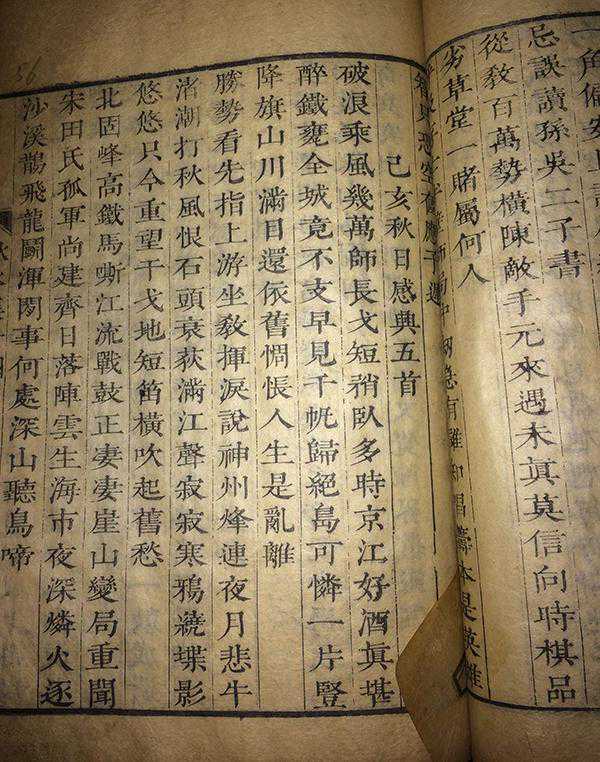 一角偏安上
忌談讀孫吳二子書
從教百萬勢橫陳敵手元來遇未眞莫信向時棋品
劣草堂一賭屬何人
急有難和
本是英雄
己亥秋日感典五首
破浪乘風幾萬師長戈短矟臥多時京江好酒眞堪
醉鐵甕全城竟不支早見千帆歸絕島可憐一片豎
降旗山川滿目還依舊惆悵人生是亂離
勝勢看先指上游坐敎揮淚說神州烽連夜月悲牛
渚潮打秋風恨石頭哀荻滿江聲寂寂寒鴉繞堞影
悠悠只今重望干戈地短笛橫吹起舊愁
北固峰高鐵馬嘶江流戰鼓正凄凄崖山變局重聞
宋田氏孤軍尚建齊日落陣雲生海市夜深燐火逐
沙溪鵲飛龍鬭渾閑事何處深山聽鳥啼